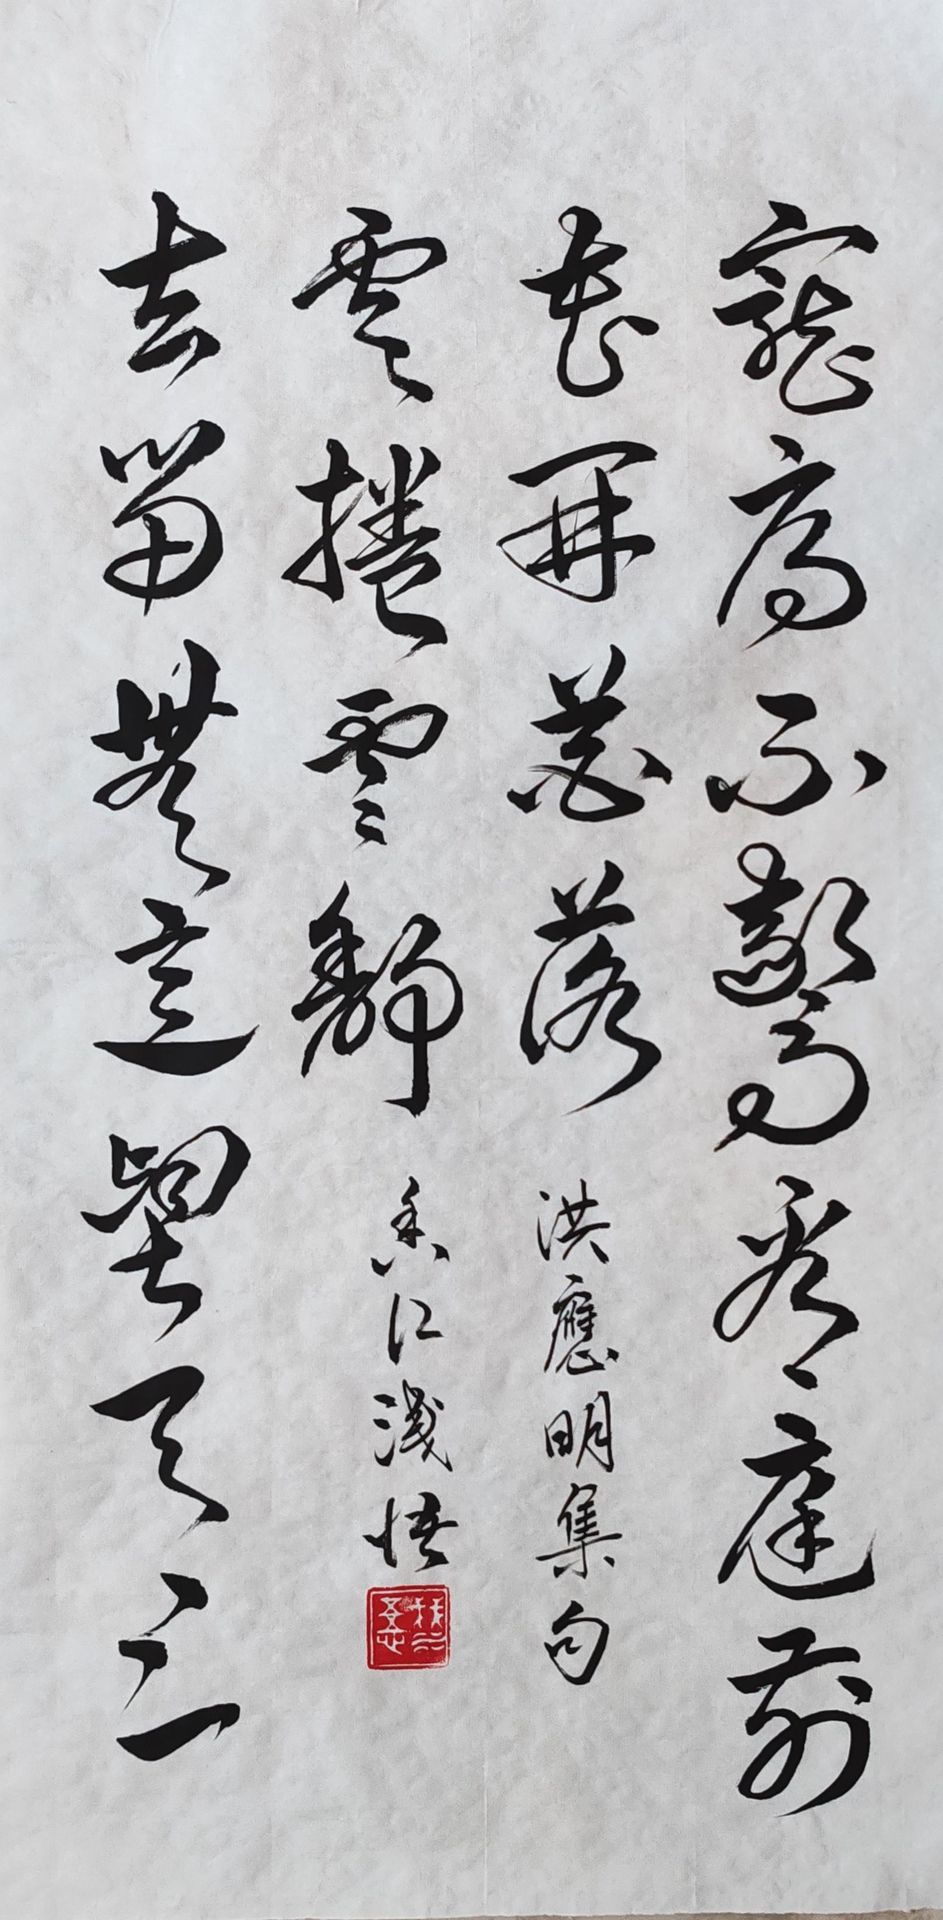 寵辱不驚看庭前
花開花落
洪應明集句
去留無意望天上
雲捲雲舒
香江淺悟